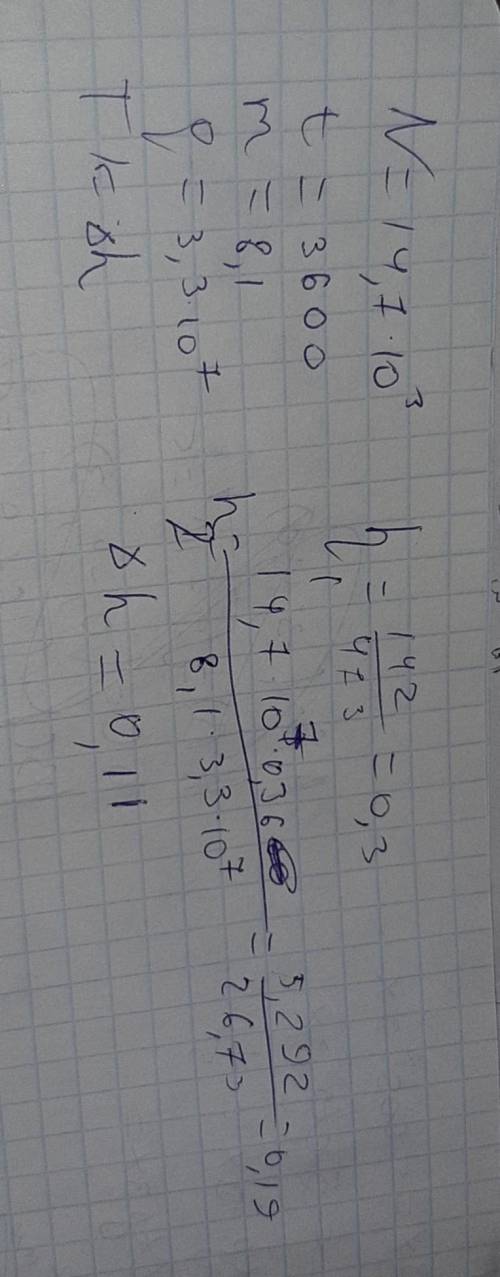 N = 14,7·10³
t = 3600
m = 8,1
q = 3,3·10⁷
T k = Δh
η₁ = 142/473 = 0,3
η₂ = 14,7·10⁷·0,36 / 8,1·3,3·10⁷ = 5,292/26,73 = 0,19
Δh = 0,11